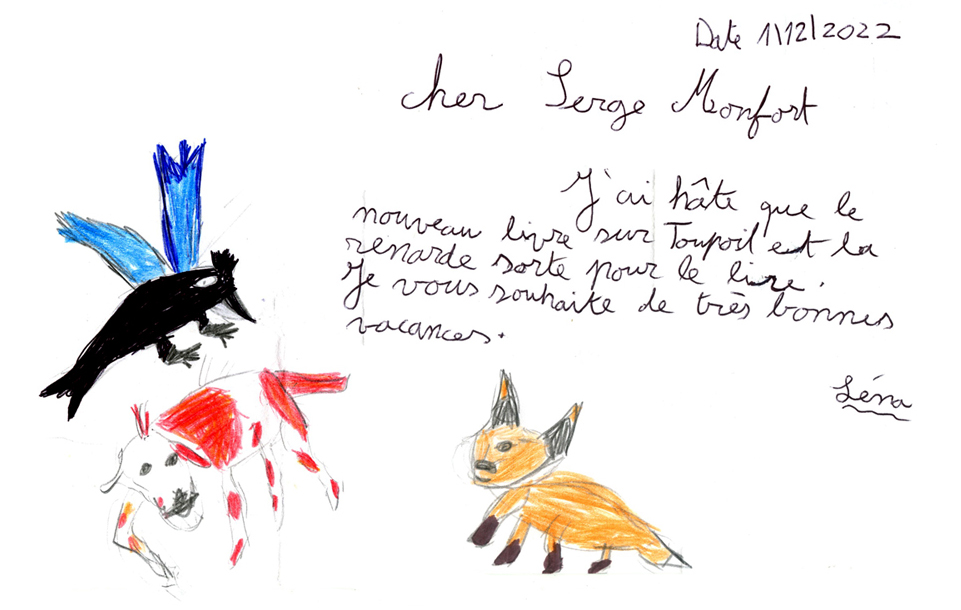 Date 1\12/2022
cher Serge Monfort
J'ai hâte que le
nouveau livre sur Toupoil est la
renarde sorte pour le lire.
Je vous souhaite de très bonnes
vacances.
Léna